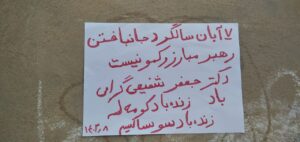 ۷ آبان سالگرد جانباختن
رهبر مبارز و کمونیست
دکتر جعفر شفیعی گرامی
باد زنده باد کومه له
زنده باد سوسیالیسم
۱۴۰۳.۸